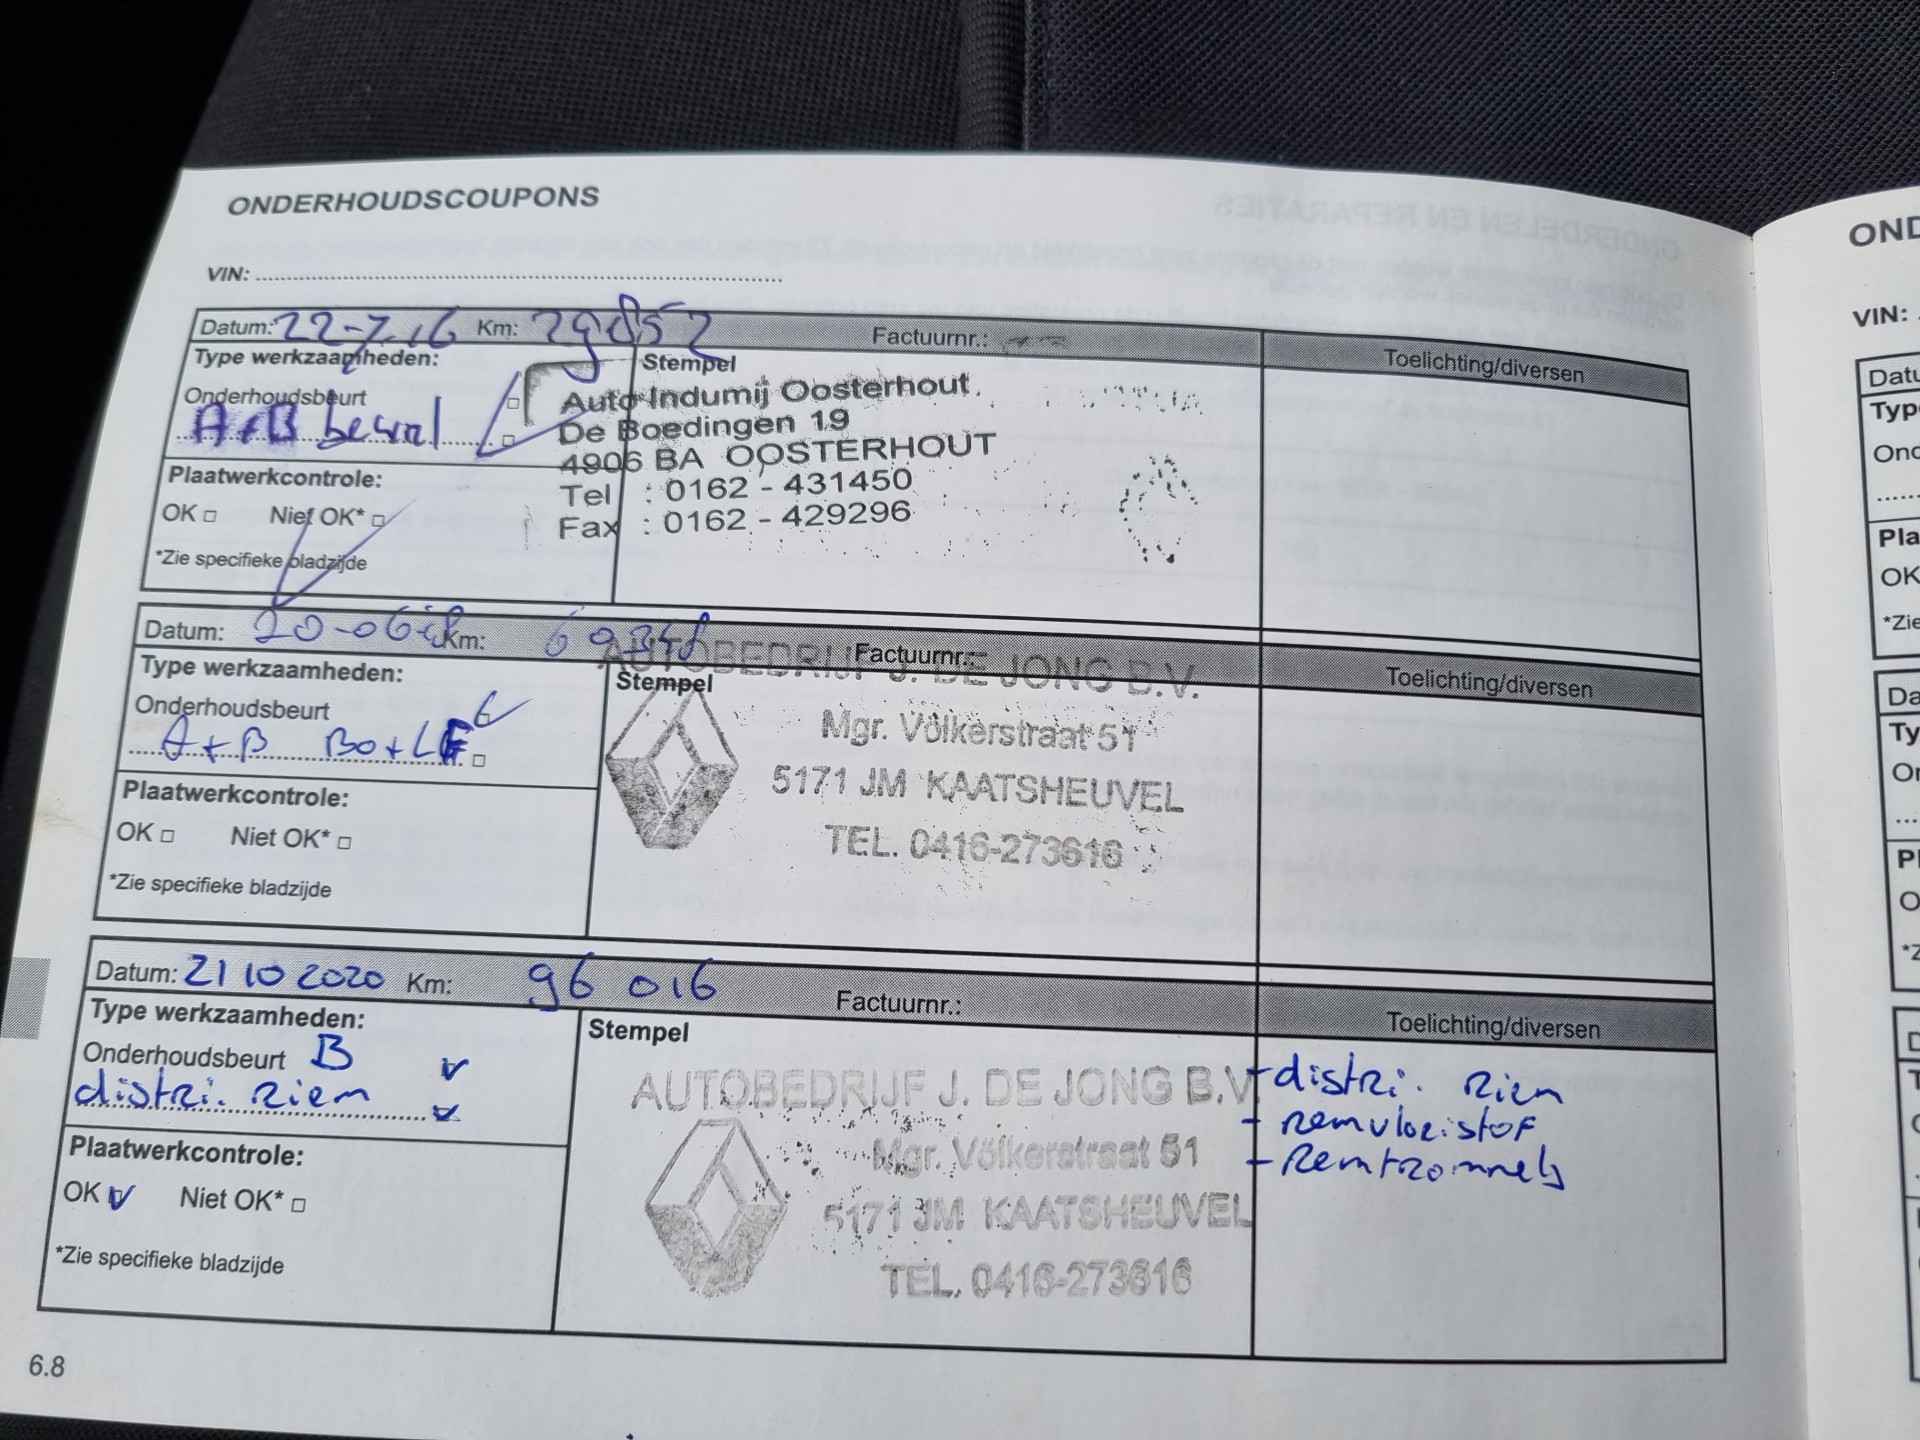 ONDERHOUDSCOUPONS
VIN:
Datum: 22-7-16 Km: 29852 Factuurnr.: Toelichting/diversen
Type werkzaamheden: Stempel
Onderhoudsbeurt
A+B
Auto Indumij Oosterhout
De Boedingen 19
4906 BA OOSTERHOUT
Tel : 0162 - 431450
Fax : 0162 - 429296
Plaatwerkcontrole:
OK Niet OK*
*Zie specifieke bladzijde
Datum: 20-06-18 Km: 69348 Factuurnr.: Toelichting/diversen
Type werkzaamheden: Stempel
Onderhoudsbeurt
A+B
AUTOBEDRIJF J. DE JONG B.V.
Mgr. Völkerstraat 51
5171 JM KAATSHEUVEL
TEL. 0416-273616
Plaatwerkcontrole:
OK Niet OK*
*Zie specifieke bladzijde
Datum: 21 10 2020 Km: 96 016 Factuurnr.: Toelichting/diversen
Type werkzaamheden: Stempel
Onderhoudsbeurt B
distri. riem
AUTOBEDRIJF J. DE JONG B.V.
Mgr. Völkerstraat 51
5171 JM KAATSHEUVEL
TEL. 0416-273616
- distri. riem
- remvloeistof
- Remtrommels
Plaatwerkcontrole:
OK Niet OK*
*Zie specifieke bladzijde
6.8
VIN: